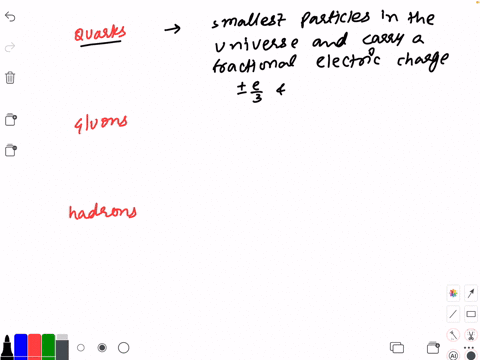 Quarks → smallest particles in the
universe and carry a
fractional electric charge
± e/3 &
gluons
hadrons